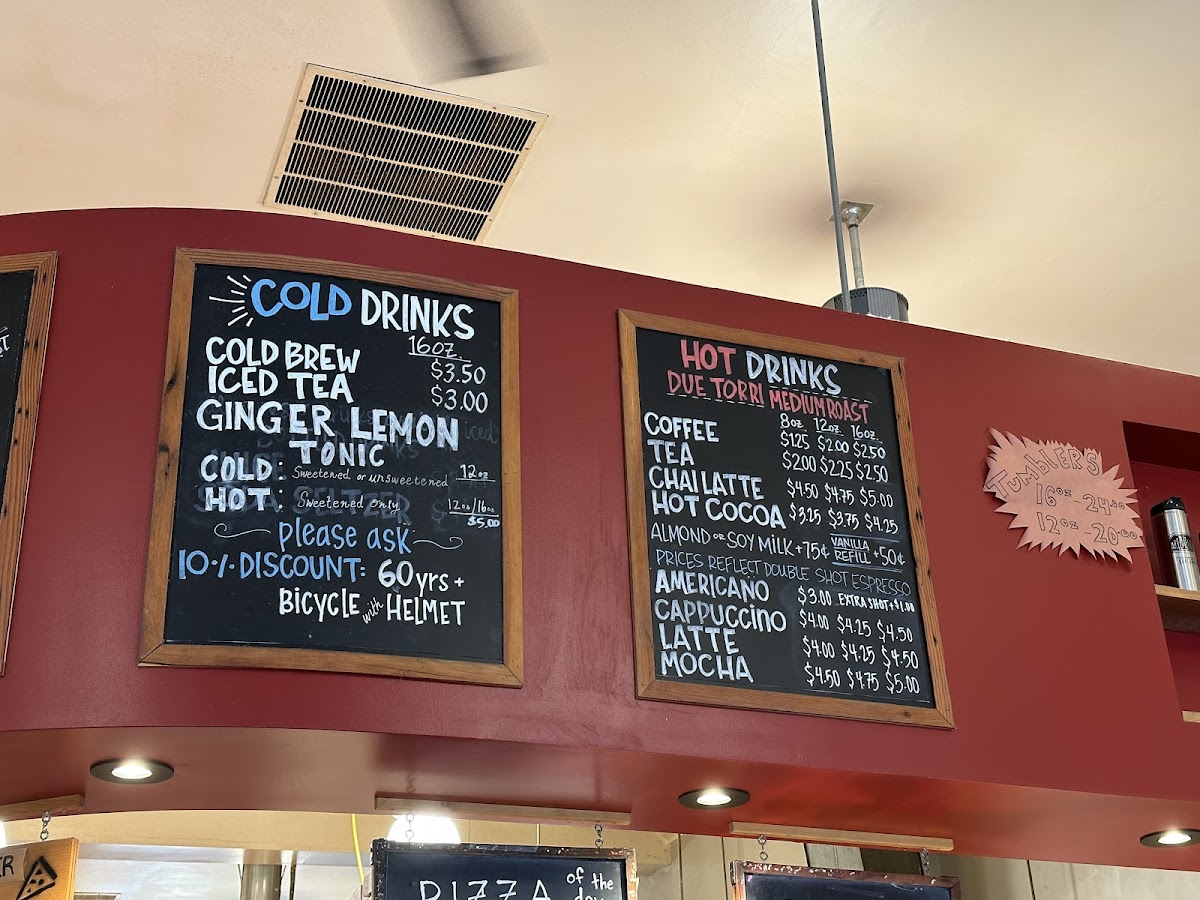 COLD DRINKS
16oz.
COLD BREW $3.50
ICED TEA $3.00
GINGER LEMON
TONIC
COLD: Sweetened or unsweetened 12oz
HOT: Sweetened only 12oz/16oz
$5.00
please ask
10% DISCOUNT: 60 yrs +
BICYCLE with HELMET
HOT DRINKS
DUE TORRI MEDIUM ROAST
8oz. 12oz. 16oz.
COFFEE $1.25 $2.00 $2.50
TEA $2.00 $2.25 $2.50
CHAI LATTE $4.50 $4.75 $5.00
HOT COCOA $3.25 $3.75 $4.25
ALMOND OR SOY MILK +75¢ VANILLA REFILL +50¢
PRICES REFLECT DOUBLE SHOT ESPRESSO
AMERICANO $3.00 EXTRA SHOT +$1.00
CAPPUCCINO $4.00 $4.25 $4.50
LATTE $4.00 $4.25 $4.50
MOCHA $4.50 $4.75 $5.00
TUMBLERS
16oz - 24.00
12oz - 20.00
PIZZA of the